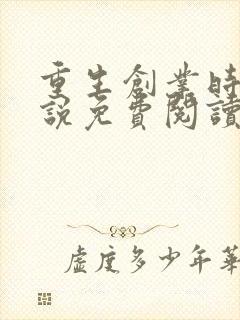 重生創業時
說免費閱讀
虛度多少年華